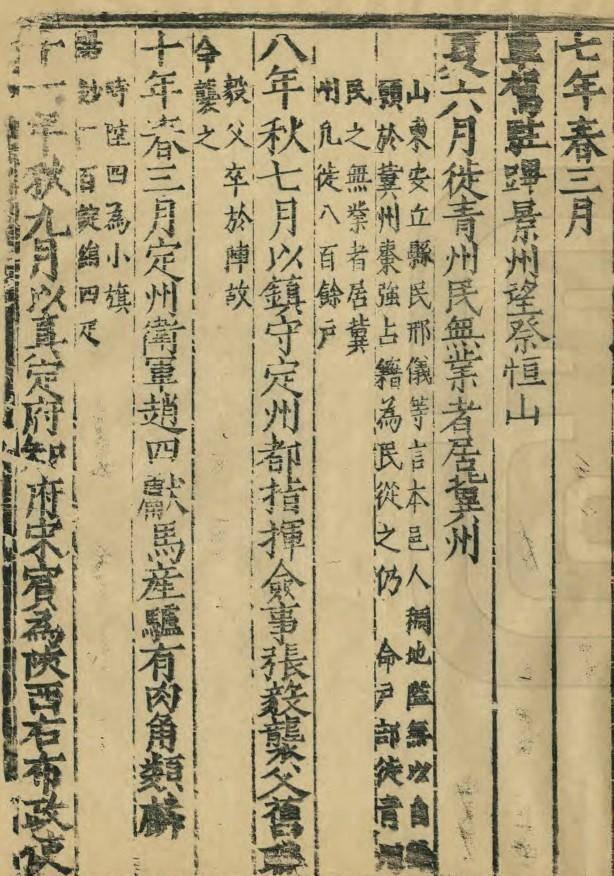 七年春三月
車駕駐蹕景州望祭恒山
夏六月徙青州民無業者居冀州
山東安丘縣民邢儀等言本邑人稠地隘無以自
願於冀州棗強占籍為民從之仍 命戶部徙青州
民之無業者居冀
州凡徙八百餘戶
八年秋七月以鎮守定州都指揮僉事張毅襲父舊職
毅父卒於陣故
令襲之
十年春三月定州衛軍趙四獻馬產驢有肉角類麟
時陞四為小旗
賜鈔一百錠絹四疋
十一年秋九月以真定府知府宋賓為陝西右布政使